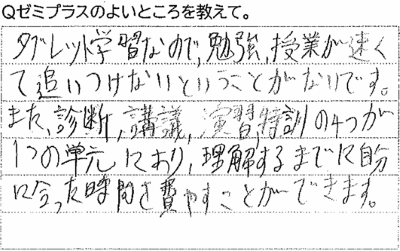 Qゼミプラスのよいところを教えて。
タブレット学習なので,勉強,授業が速く
て追いつけないということがないです。
また,診断,講義,演習,特訓の4つが
1つの単元にあり,理解するまでに自分
に合った時間を費やすことができます。